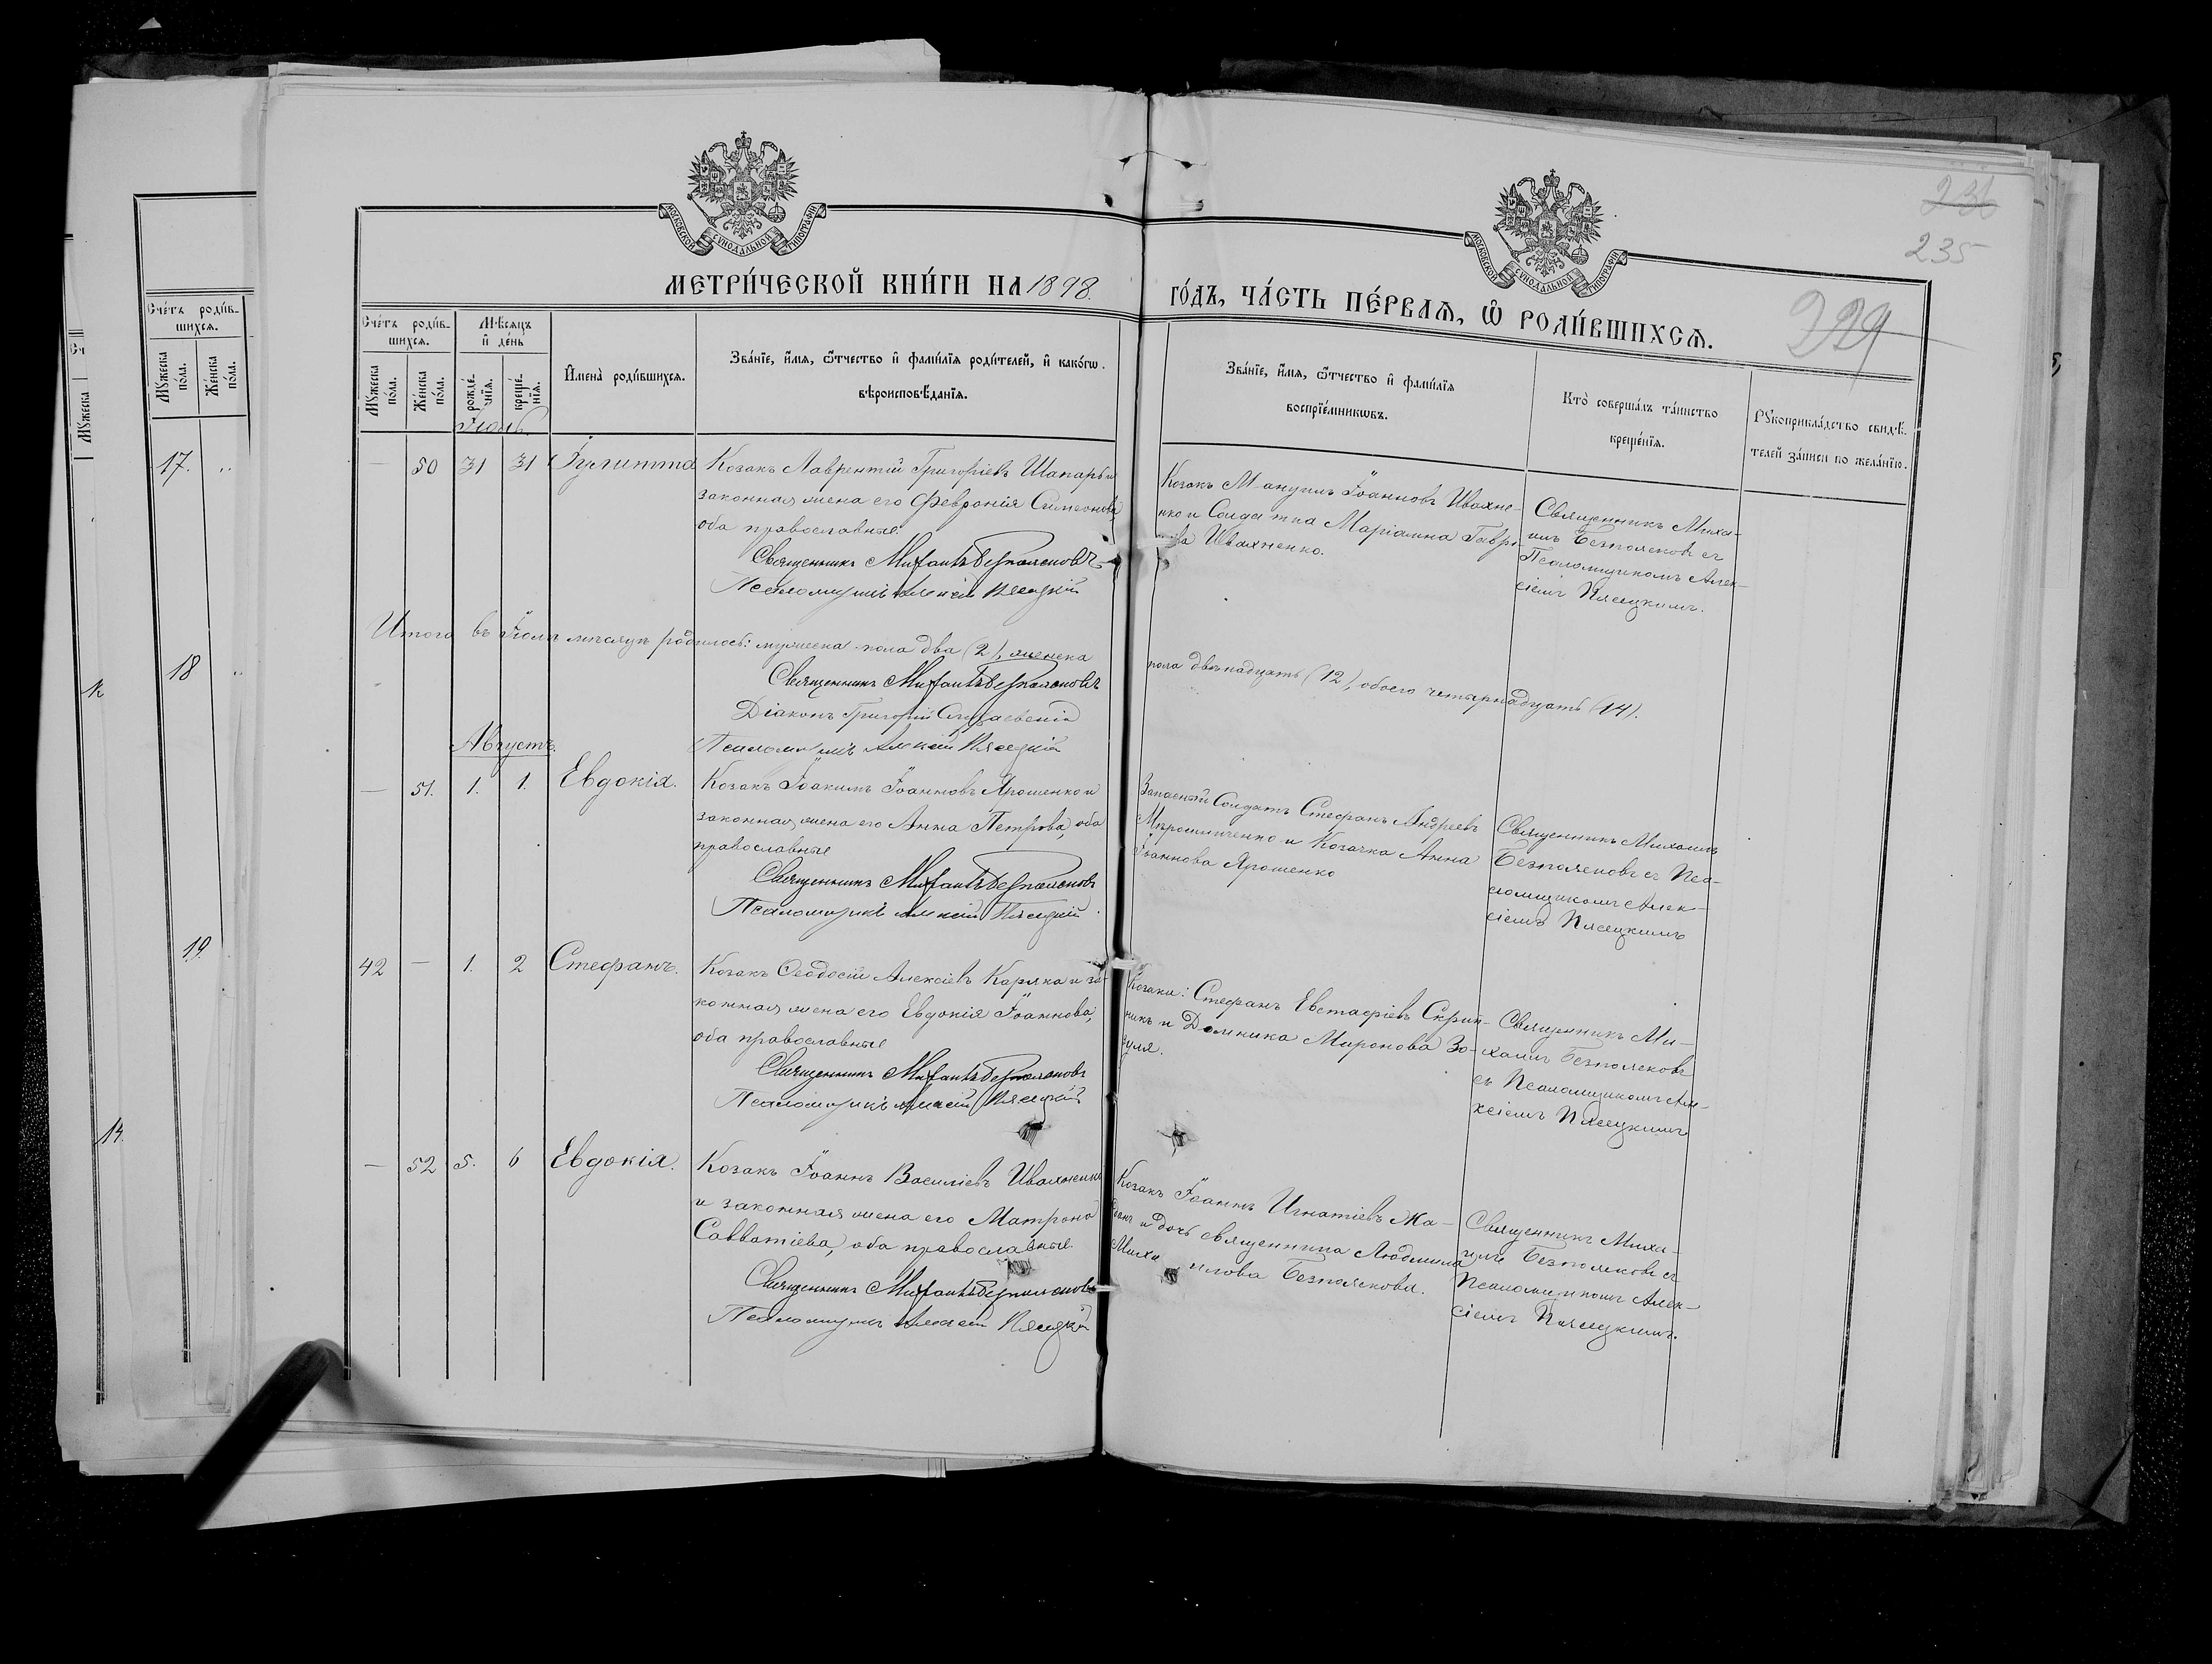 236
235
229
МОСКОВСКОЙ СУНОДАЛЬНОЙ ТИПОГРАФІИ
МОСКОВСКОЙ СУНОДАЛЬНОЙ ТИПОГРАФІИ
МЕТРИ́ЧЕСКОЙ КНИ́ГИ НА 1898.
ГО́ДЪ, ЧА́СТЬ ПЕ́РВАѦ, Ѿ РОДИ́ВШИХСѦ.
Сче́тъ роди́в-
шихсѧ.
Мѹ́жеска
по́ла.
Же́нска
по́ла.
Мѣ́сѧцъ
и҆ де́нь
рожде́-
нїѧ.
креще́-
нїѧ.
И҆мена̀ роди́вшихсѧ.
Зва́нїе, и҆́мѧ, ѻ҆́тчество и҆ фами́лїѧ роди́телей, и҆ како́гѡ
вѣроисповѣ́данїѧ.
Зва́нїе, и҆́мѧ, ѻ҆́тчество и҆ фами́лїѧ
воспрїе́мниковъ.
Кто̀ соверша́лъ та́инство
креще́нїѧ.
Рѹкоприкла́дство свидѣ́-
телей за́писи по жела́нїю.
Сче́тъ роди́в-
шихсѧ.
Мѹ́жеска
по́ла.
Же́нска
по́ла.
Мѹ́жеска
17.
18
19.
14.
Іюль.
— 50 31 31 Іулитта
Козакъ Лаврентій Григоріевъ Шапарь и
законная жена его Февронія Симеонова,
оба православные.
Священникъ Михаилъ Безпояековъ
Псаломщикъ Алексій Пясецкій
Козакъ Мануилъ Іоанновъ Ивахне-
нко и Солдатка Маріанна Гаврі-
Ивахненко.
Священникъ Миха-
илъ Безпоясковъ съ
Псаломщикомъ Алек-
сіемъ Пясецкимъ.
Итого въ Іюлѣ мѣсяцѣ родилось: мужеска пола два (2), женска
пола двѣнадцать (12), обоего четырнадцать (14).
Священникъ Михаилъ Безпоясковъ
Діаконъ Григорій
Псаломщикъ Алексій Пясецкій
Августъ.
— 51. 1. 1. Евдокія.
Козакъ Іоакимъ Іоанновъ Ярошенко и
законная жена его Анна Петрова, оба
православные
Священникъ Михаилъ Безпоясковъ
Псаломщикъ Алексій Пясецкій
Запасный Солдатъ Стефанъ Андреевъ
Мірошниченко и Козачка Анна
Іоаннова Ярошенко
Священникъ Михаилъ
Безпоясковъ съ Пса-
ломщикомъ Алек-
сіемъ Пясецкимъ
42 — 1. 2 Стефанъ.
Козакъ Ѳеодосій Алексіевъ Каряка и за-
конная жена его Евдокія Іоаннова,
оба православные
Священникъ Михаилъ Безпоясковъ
Псаломщикъ Алексій Пясецкій
Козаки: Стефанъ Евстафіевъ Скрип-
никъ и Домника Миронова Зо-
зуля.
Священникъ Ми-
хаилъ Безпоясковъ
съ Псаломщикомъ Але-
ксіемъ Пясецкимъ
— 52 5. 6 Евдокія.
Козакъ Іоаннъ Василіевъ Ивахненко
и законная жена его Матрона
Савватіева, оба православные.
Священникъ Михаилъ Безпоясковъ
Псаломщикъ Алексій Пясецкій
Козакъ Іоаннъ Игнатіевъ
и дочь священника Людмила
Михаилова Безпояскова.
Священникъ Миха-
илъ Безпоясковъ съ
Псаломщикомъ Алек-
сіемъ Пясецкимъ.